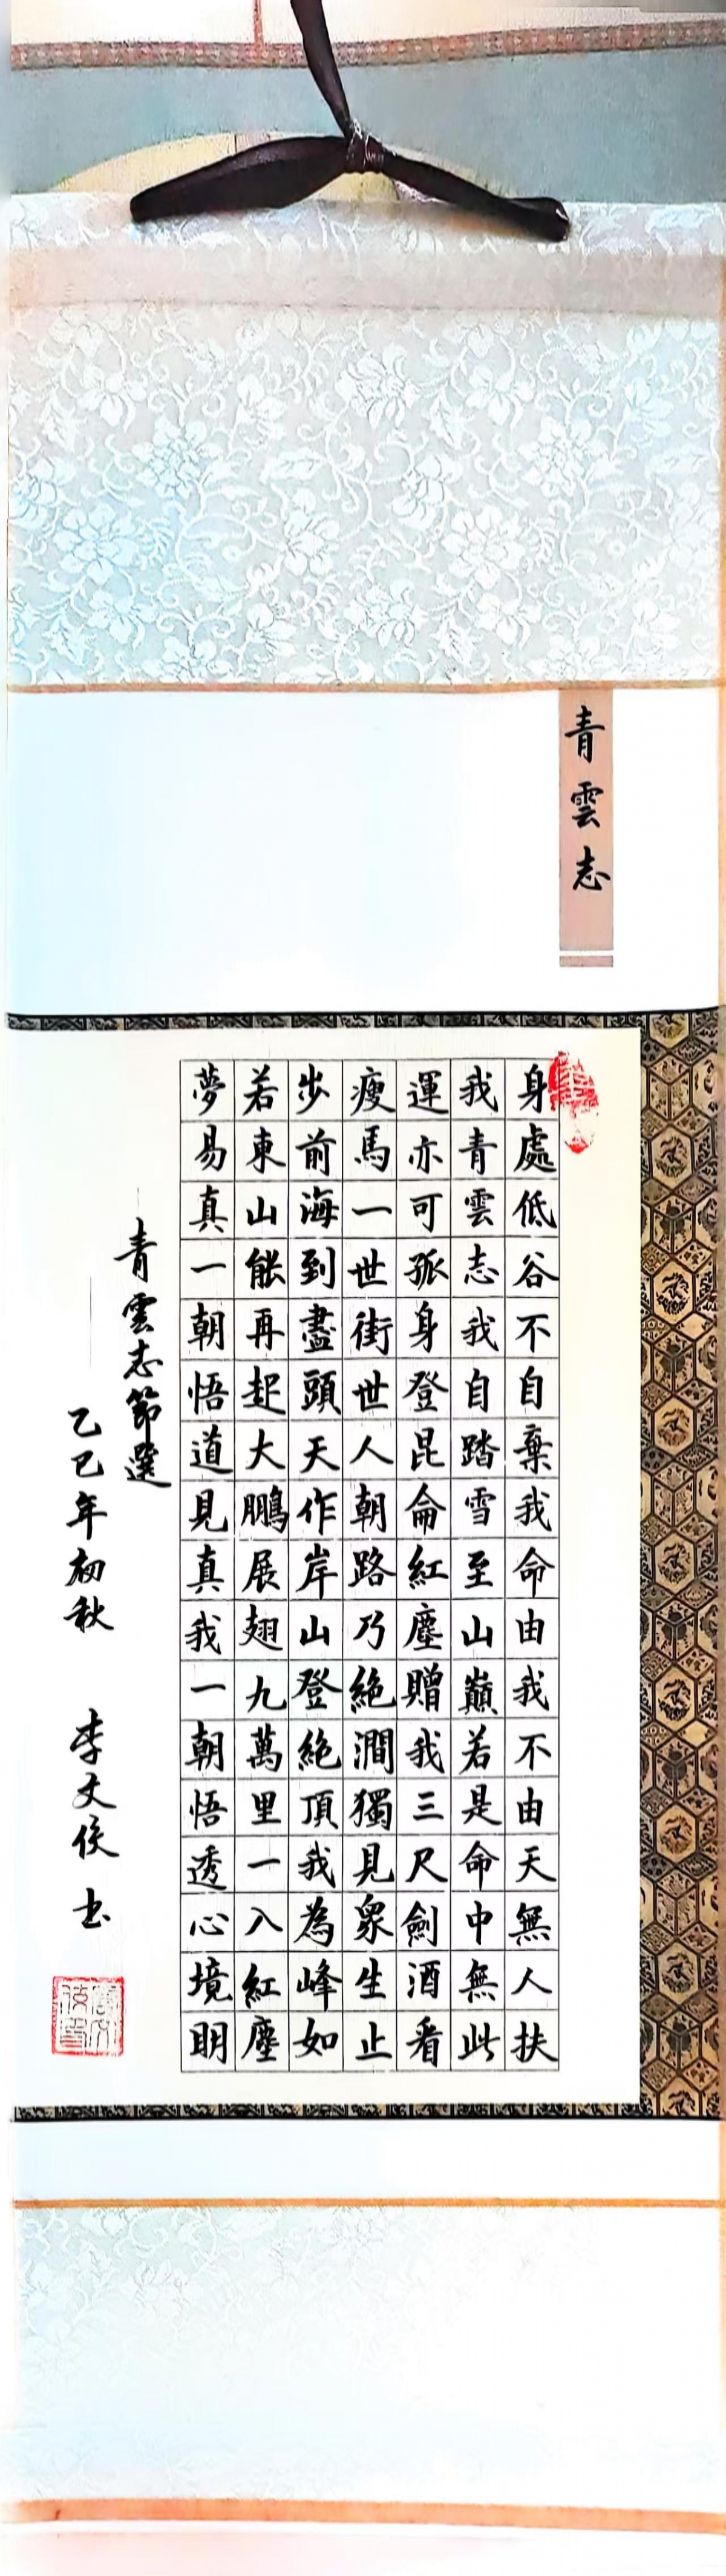 青雲志
身處低谷不自棄我命由我不由天無人扶
我青雲志我自踏雪至山巔若是命中無此
運亦可孤身登昆侖紅塵贈我三尺劍酒看
瘦馬一世街世人朝路乃絕澗獨見眾生止
步前海到盡頭天作岸山登絕頂我為峰如
若東山能再起大鵬展翅九萬里一入紅塵
夢易真一朝悟道見真我一朝悟透心境明
青雲志節選
乙巳年初秋 李文侯 书